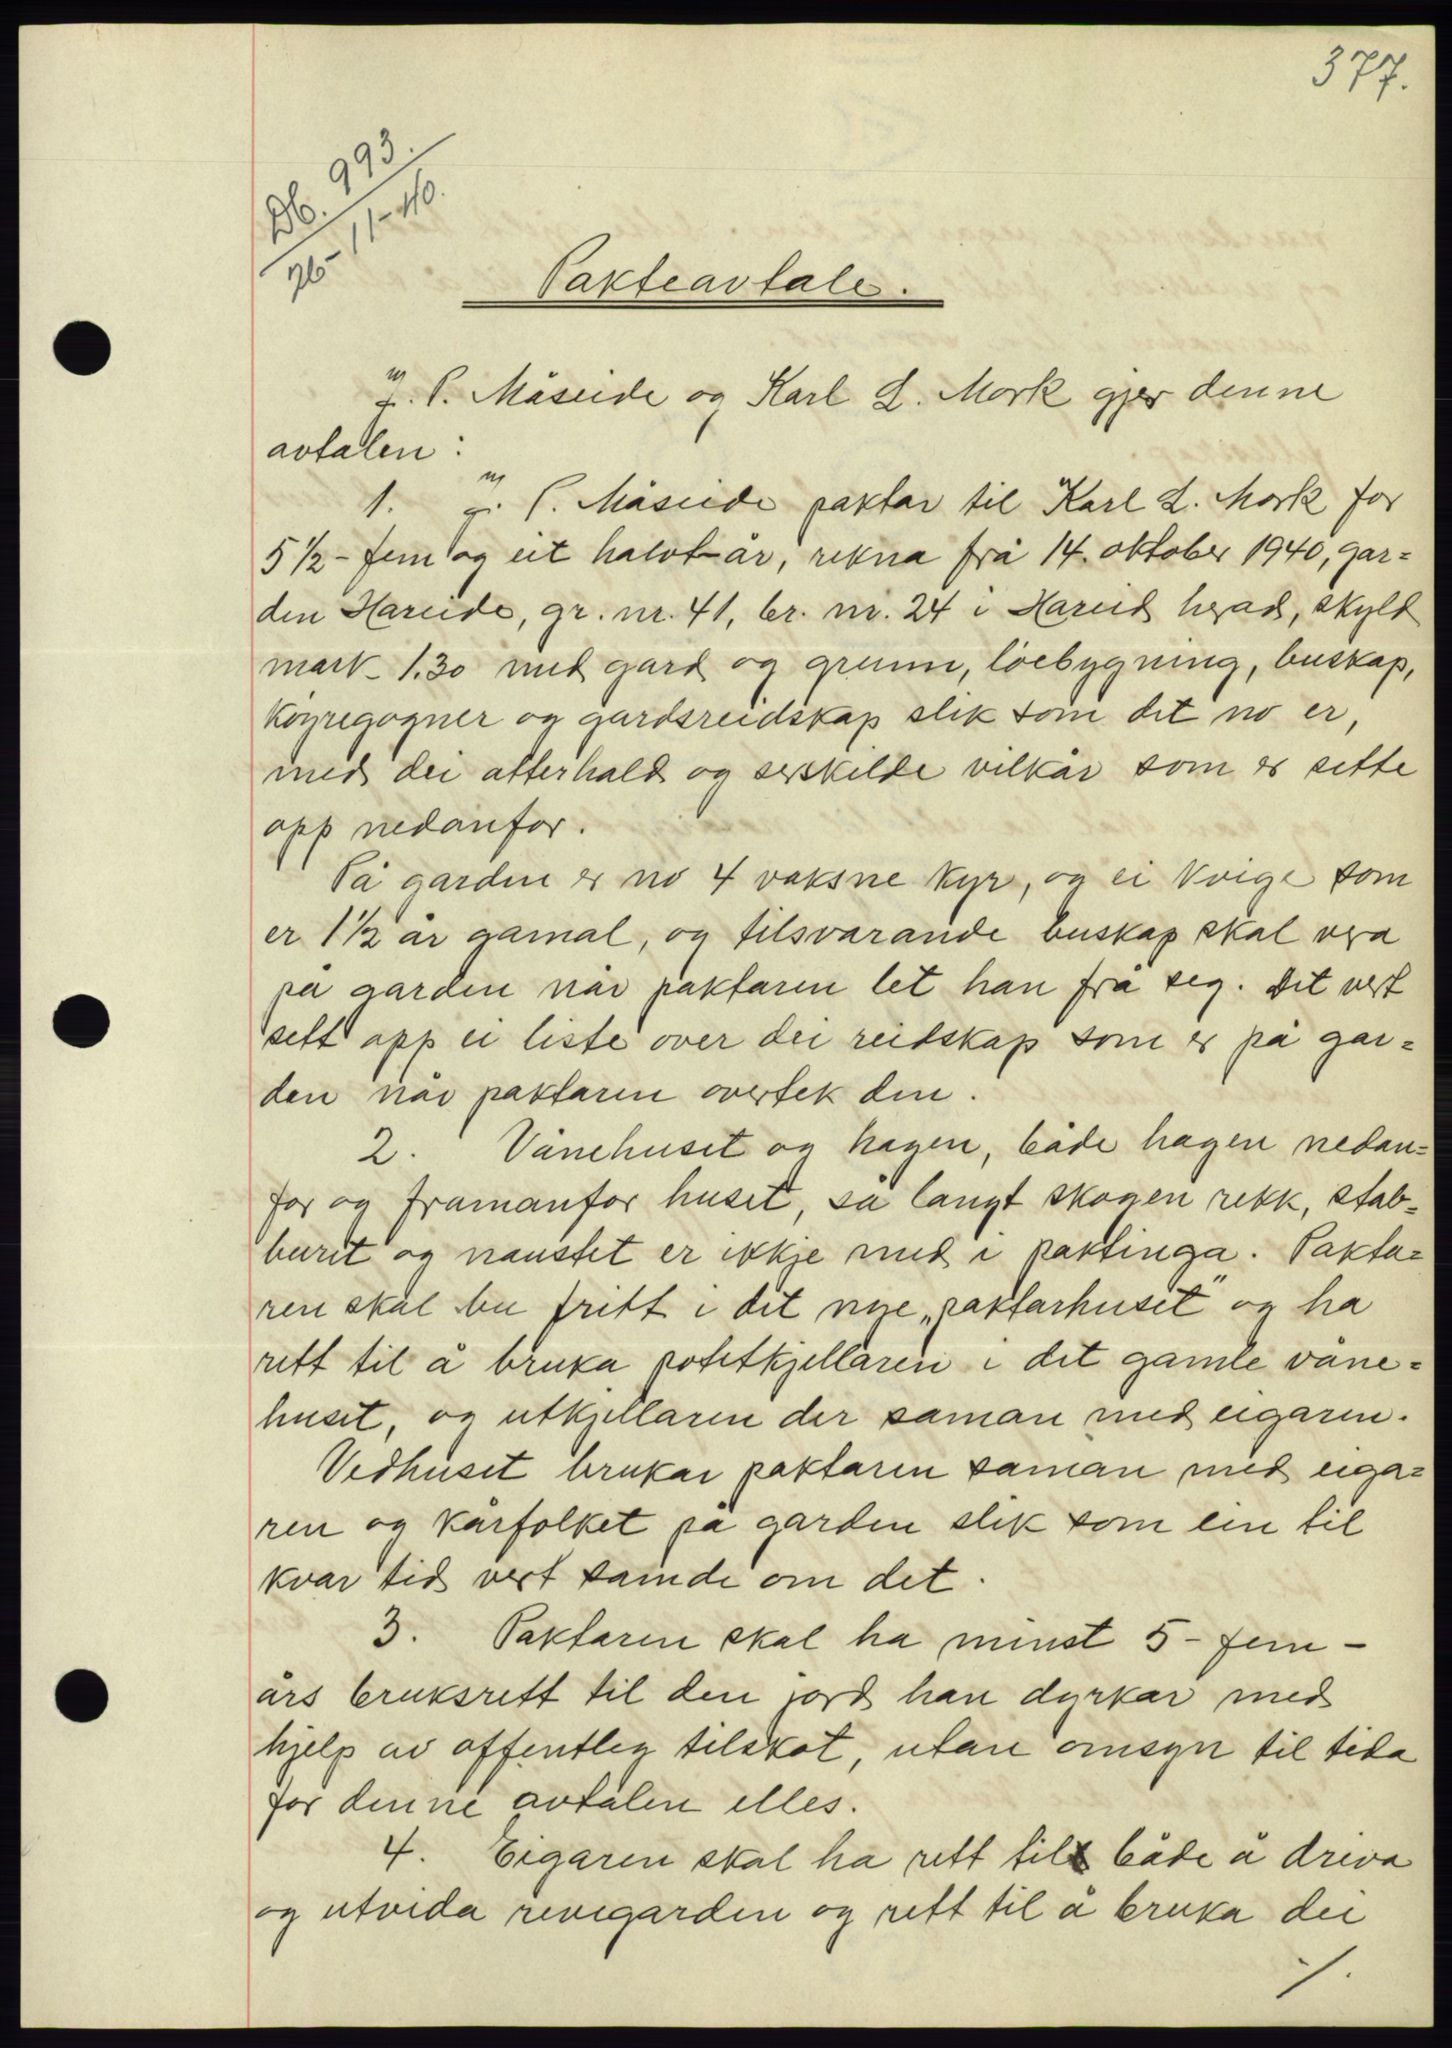 377.
Db. 993.
26-11-40.
Pakteavtale.
J. P. Måseide og Karl L. Mork gjer denne
avtalen:
1. J. P. Måseide paktar til Karl L. Mork for
5 1/2 - fem og eit halvt år, rekna frå 14. oktober 1940, gar=
den Hareide, gr. nr. 41, br. nr. 24 i Hareid herad, skyld
mark 1.30 med gard og grunn, löebygning, buskap,
köyregogner og gardsreidskap slik som det no er,
med dei atterhald og serskilde vilkår som er sette
opp nedanfor.
På garden er no 4 vaksne kyr, og ei kvige som
er 1 1/2 år gamal, og tilsvarande buskap skal vera
på garden når paktaren let han frå seg. Det vert
sett opp ei liste over dei reidskap som er på gar=
den når paktaren overtek den.
2. Vånehuset og hagen, både hagen nedan=
for og framanfor huset, så langt skogen rekk, stab=
buret og naustet er ikkje med i paktinga. Pakta=
ren skal bu fritt i det nye „paktarhuset" og ha
rett til å bruka potetkjellaren i det gamle våne=
huset, og utkjellaren der saman med eigaren.
Vedhuset brukar paktaren saman med eiga=
ren og kårfolket på garden slik som ein til
kvar tid vert samde om det.
3. Paktaren skal ha minst 5 - fem -
års bruksrett til den jord han dyrkar med
hjelp av offentleg tilskot, utan omsyn til tida
for denne avtalen elles.
4. Eigaren skal ha rett til både å driva
og utvida revegarden og rett til å bruka dei
./.